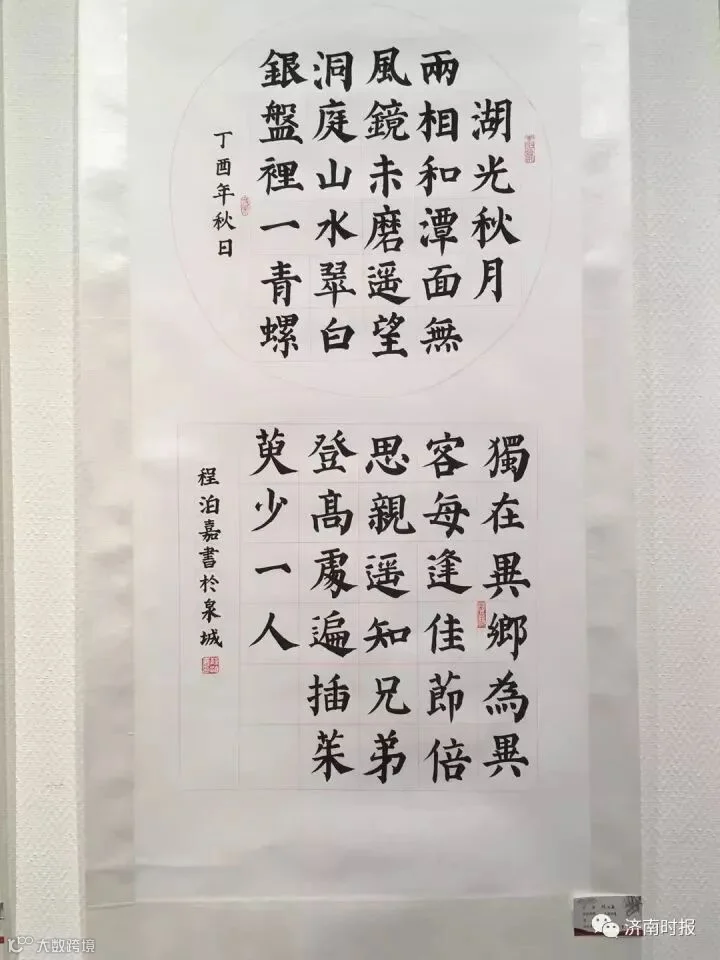 湖光秋月
兩相和潭面無
風鏡未磨遥望
洞庭山水翠白
銀盤裡一青螺
丁酉年秋日
獨在異鄉為異
客每逢佳節倍
思親遥知兄弟
登高處遍插茱
萸少一人
程泊嘉書於泉城
大数跨境
济南时报